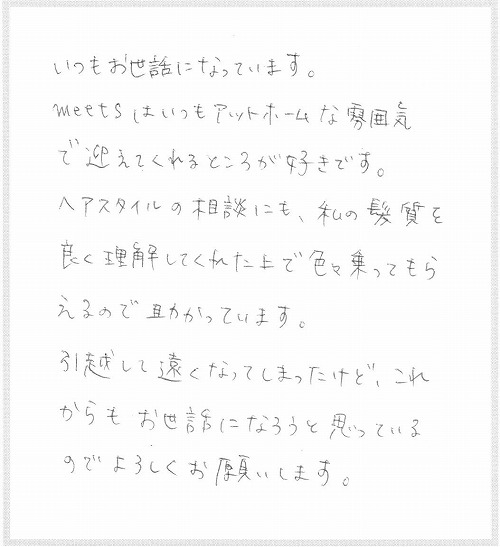 いつもお世話になっています。
meetsはいつもアットホームな雰囲気
で迎えてくれるところが好きです。
ヘアスタイルの相談にも、私の髪質を
良く理解してくれた上で色々乗ってもら
えるので助かっています。
引越して遠くなってしまったけど、これ
からもお世話になろうと思っている
のでよろしくお願いします。